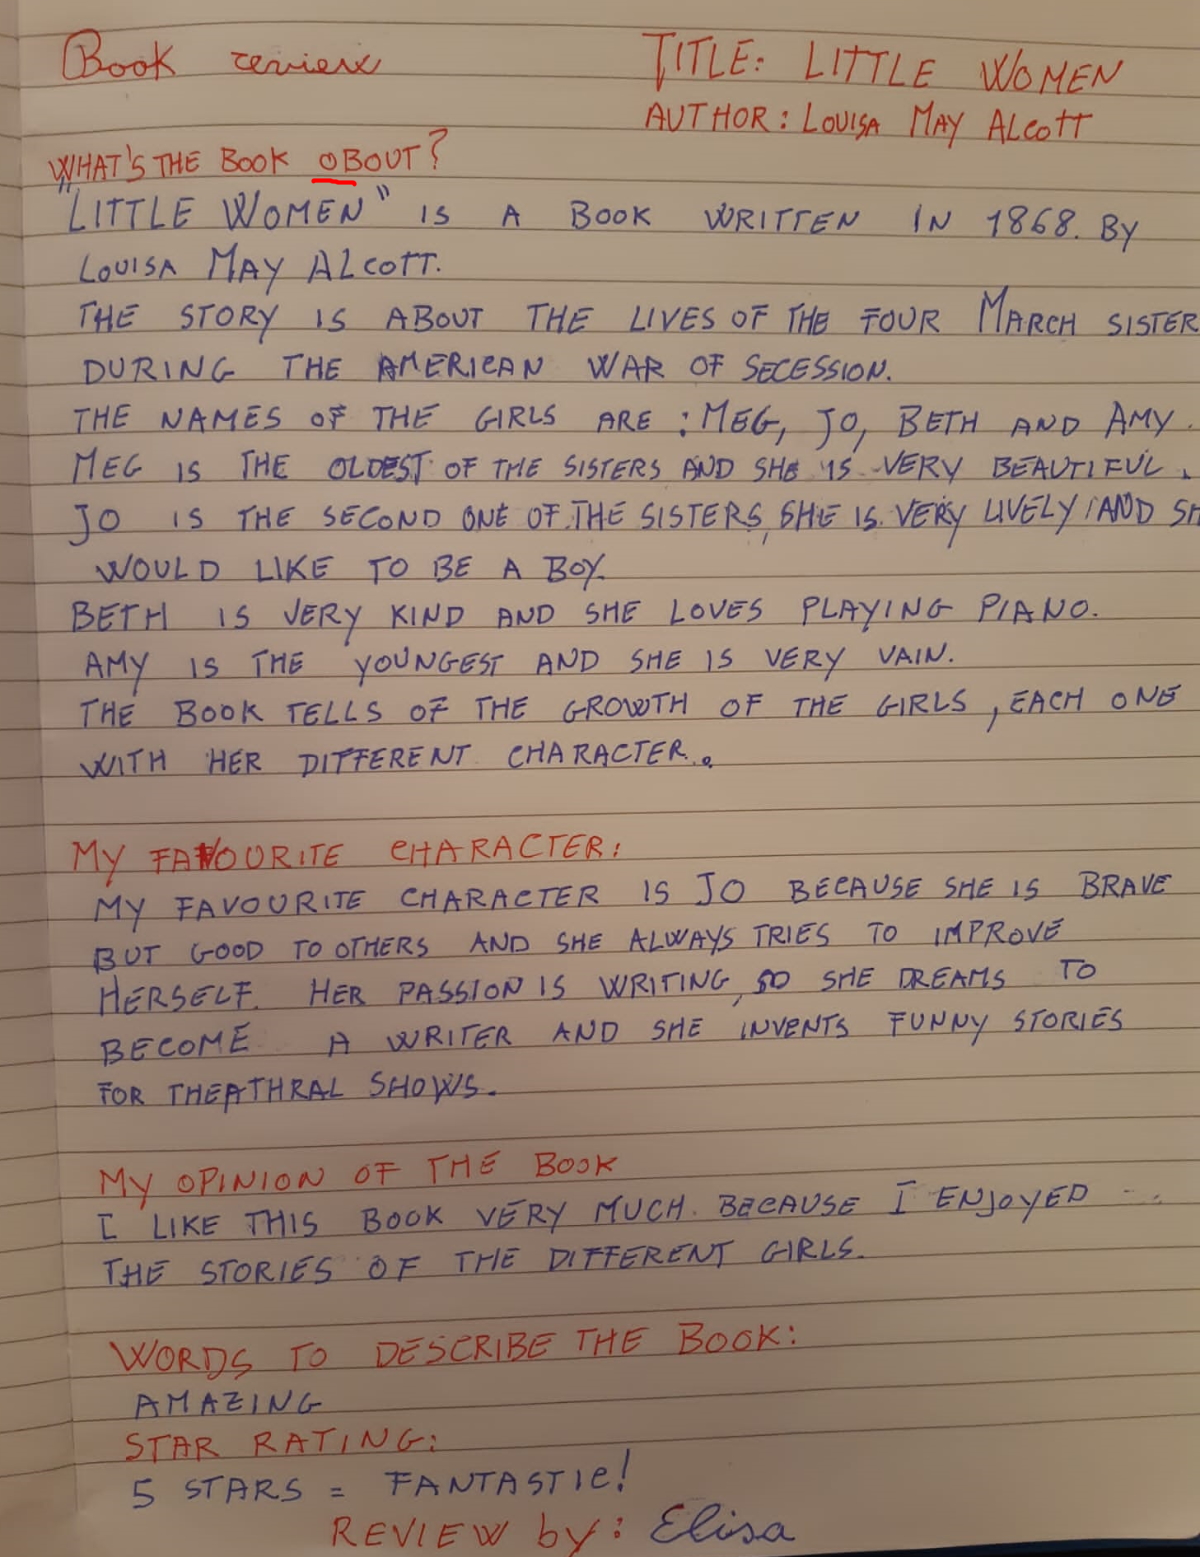 Book review
TITLE: LITTLE WOMEN
AUTHOR: LOUISA MAY ALCOTT
WHAT'S THE BOOK OBOUT?
"LITTLE WOMEN" IS A BOOK WRITTEN IN 1868. BY
LOUISA MAY ALCOTT.
THE STORY IS ABOUT THE LIVES OF THE FOUR MARCH SISTER
DURING THE AMERICAN WAR OF SECESSION.
THE NAMES OF THE GIRLS ARE : MEG, JO, BETH AND AMY.
MEG IS THE OLDEST OF THE SISTERS AND SHE IS VERY BEAUTIFUL.
JO IS THE SECOND ONE OF THE SISTERS, SHE IS VERY LIVELY AND SH
WOULD LIKE TO BE A BOY.
BETH IS VERY KIND AND SHE LOVES PLAYING PIANO.
AMY IS THE YOUNGEST AND SHE IS VERY VAIN.
THE BOOK TELLS OF THE GROWTH OF THE GIRLS, EACH ONE
WITH HER DIFFERENT CHARACTER.
MY FAVOURITE CHARACTER:
MY FAVOURITE CHARACTER IS JO BECAUSE SHE IS BRAVE
BUT GOOD TO OTHERS AND SHE ALWAYS TRIES TO IMPROVE
HERSELF. HER PASSION IS WRITING, SO SHE DREAMS TO
BECOME A WRITER AND SHE INVENTS FUNNY STORIES
FOR THEATHRAL SHOWS.
MY OPINION OF THE BOOK
I LIKE THIS BOOK VERY MUCH BECAUSE I ENJOYED
THE STORIES OF THE DIFFERENT GIRLS.
WORDS TO DESCRIBE THE BOOK:
AMAZING
STAR RATING:
5 STARS = FANTASTIC!
REVIEW by: Elisa